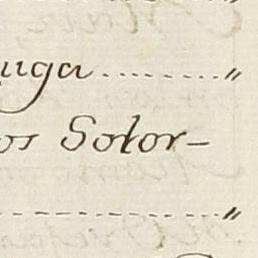 uga ........... "
os Solor-
----------- "